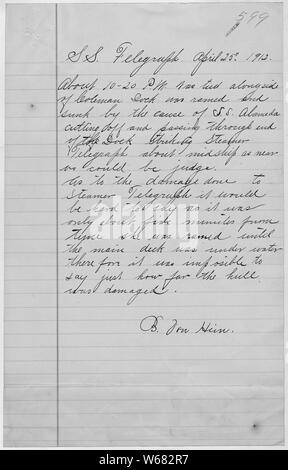 599
S.S. Telegraph April 25th 1912.
About 10-20 P.M. was tied alongside
of Coleman Dock was ramed and
sunk by the cause of S.S. Alameda
cutting off and passing through end
of the Dock Steamer
Telegraph about midship as near
as could be judge.
as to the damage done to
Steamer Telegraph it would
be hard to say as it was
only minutes from
time she was ramed until
the main deck was under water
therefore it was imposible to
say just how far the hull
was damaged.
B. Von Hein.
alamy
Image ID: W682R7
www.alamy.com